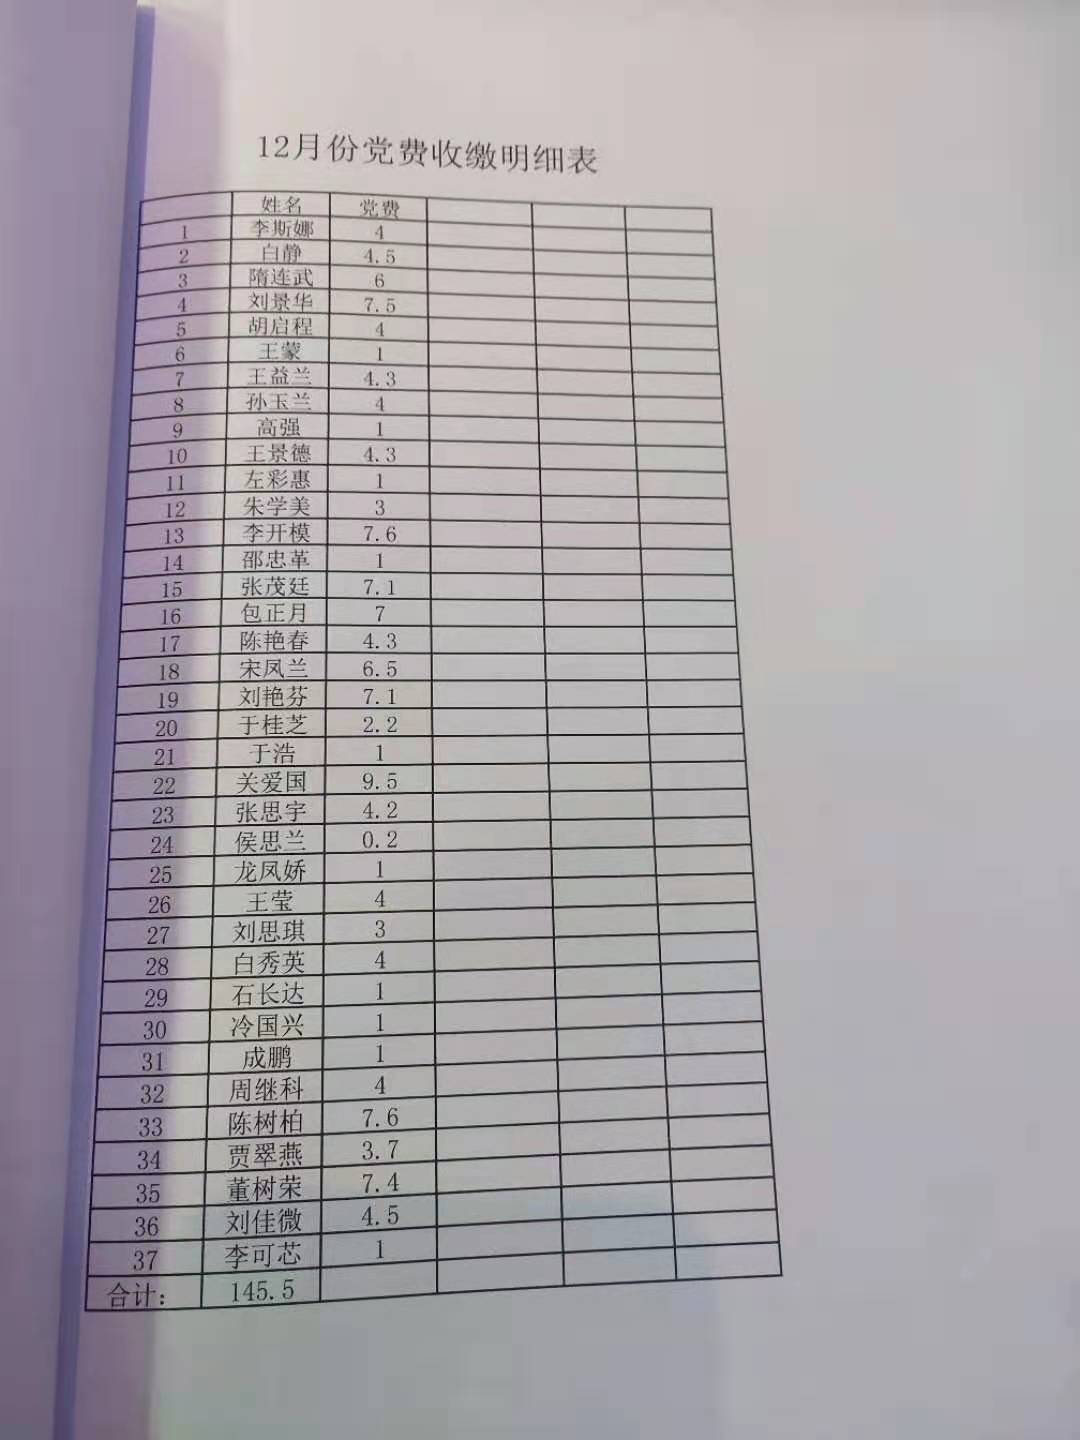 12月份党费收缴明细表
姓名 党费
1 李斯娜 4
2 白静 4.5
3 隋连武 6
4 刘景华 7.5
5 胡启程 4
6 王蒙 1
7 王益兰 4.3
8 孙玉兰 4
9 高强 1
10 王景德 4.3
11 左彩惠 1
12 朱学美 3
13 李开模 7.6
14 邵忠革 1
15 张茂廷 7.1
16 包正月 7
17 陈艳春 4.3
18 宋凤兰 6.5
19 刘艳芬 7.1
20 于桂芝 2.2
21 于浩 1
22 关爱国 9.5
23 张思宇 4.2
24 侯思兰 0.2
25 龙凤娇 1
26 王莹 4
27 刘思琪 3
28 白秀英 4
29 石长达 1
30 冷国兴 1
31 成鹏 1
32 周继科 4
33 陈树柏 7.6
34 贾翠燕 3.7
35 董树荣 7.4
36 刘佳微 4.5
37 李可芯 1
合计： 145.5